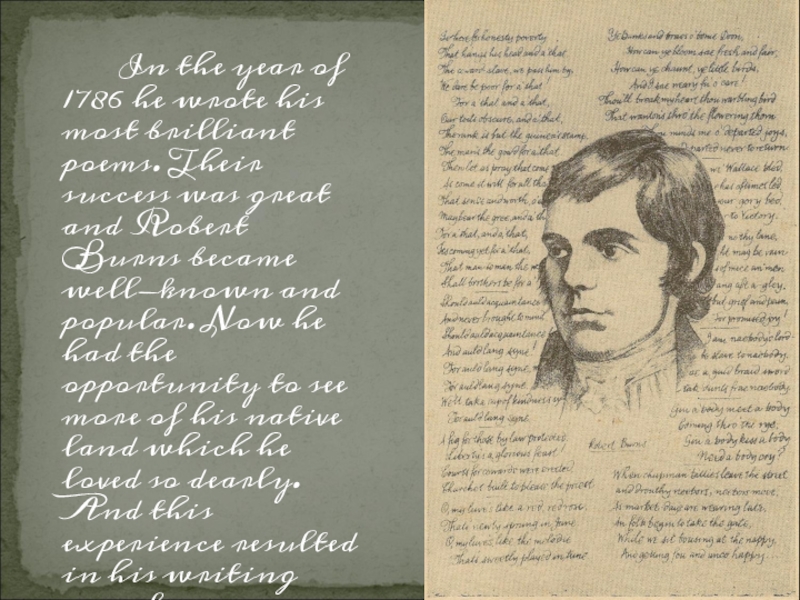 In the year of
1786 he wrote his
most brilliant
poems. Their
success was great
and Robert
Burns became
well-known and
popular. Now he
had the
opportunity to see
more of his native
land which he
loved so dearly.
And this
experience resulted
in his writing
Is there for honesty poverty
That hangs his head and a' that
The coward slave, we pass him by,
We dare be poor for a' that
For a' that and a' that,
Our toils obscure, and a' that,
The rank is but the guinea's stamp
The man's the gowd for a' that
Then let us pray that come
As come it will for all tha
That sense and worth, o'
May bear the gree, and a' th
For a' that, and a' that,
Its coming yet for a' that,
That man to man the w
Shall brothers be for a'
Should auld acquaintance
And never brought to mind
Should auld acquaintance b
And auld lang syne!
For auld lang syne, m
For auld lang syne,
We'll take a cup of kindness y
For auld lang syne
A fig for those by law protected.
Liberty's a glorious feast!
Courts for cowards were erected
Churches built to please the priest
O, my luve's like a red, red rose.
That's newly sprung in June
O, my luve's like the melodie
That's sweetly played in tune
Ye banks and braes o' bonie Doon,
How can ye bloom sae fresh and fair,
How can ye chaunt, ye little birds,
And I sae weary fu' o' care!
Thou'll break my heart thou warbling bird
That wantons thro the flowering thorn
Thou minds me o' departed joys,
departed never to return
wi' Wallace bled,
has aftimes led,
your gory bed,
to Victory.
no thy lane,
ht may be vain
s of mice an' men
ang aft a-gley,
but grief and pain,
For promised joy!
I am naebody's lord
to slave to naebody
ae a guid braid sword
tak dunts frae naebody
Gin a body meet a body
Coming thro the rye;
Gin a body kiss a body
Need a body cry?
Robert Burns
When chapman billies leave the street
and drouthy neebors, neebors meet,
As market days are wearing late,
An' folk begin to take the gate,
While we sit bousing at the nappy
An' getting fou and unco happy...